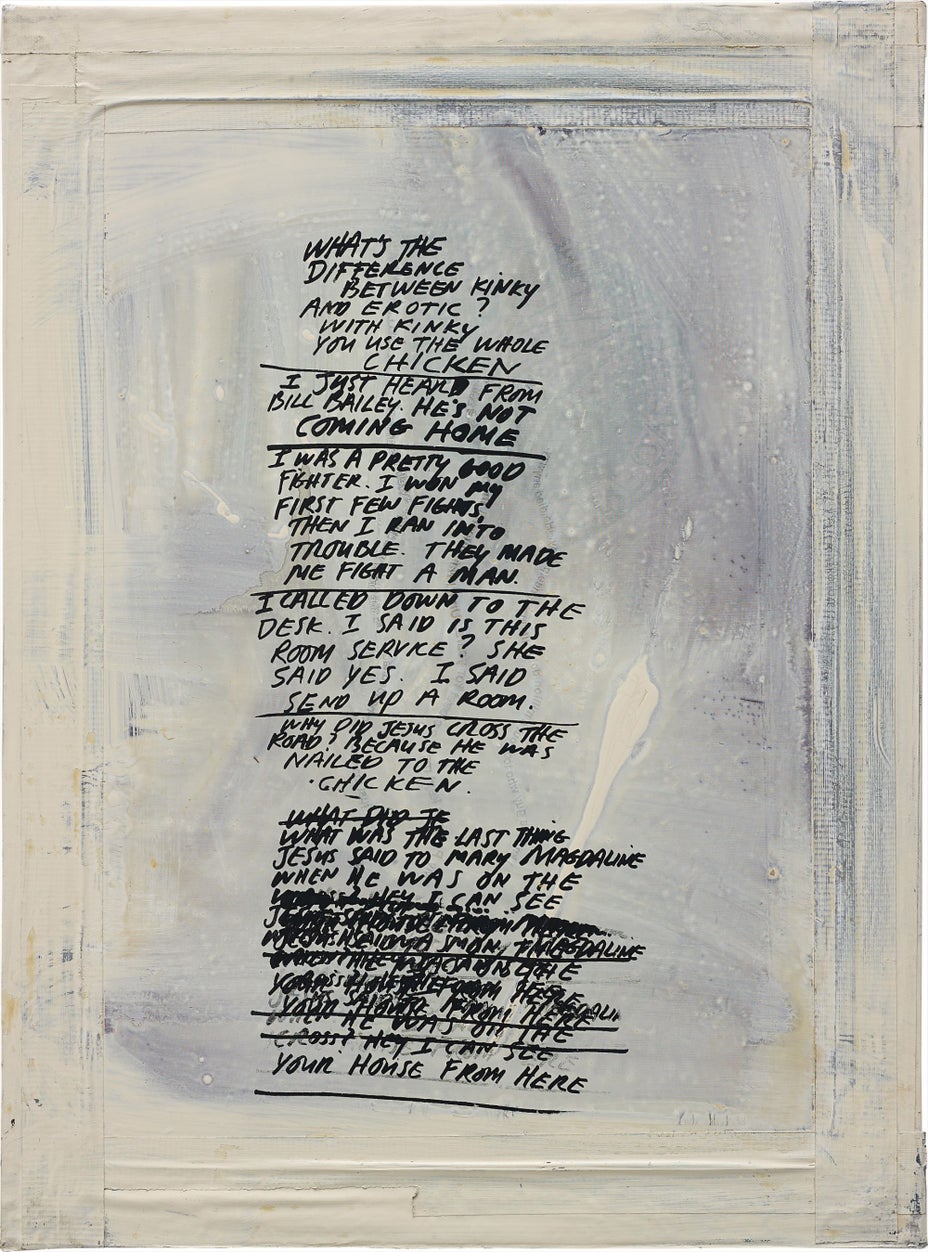 WHAT'S THE
DIFFERENCE
BETWEEN KINKY
AND EROTIC?
WITH KINKY
YOU USE THE WHOLE
CHICKEN
I JUST HEARD FROM
BILL BAILEY. HE'S NOT
COMING HOME
I WAS A PRETTY GOOD
FIGHTER. I WON MY
FIRST FEW FIGHTS,
THEN I RAN INTO
TROUBLE. THEY MADE
ME FIGHT A MAN.
I CALLED DOWN TO THE
DESK. I SAID IS THIS
ROOM SERVICE? SHE
SAID YES. I SAID
SEND UP A ROOM.
WHY DID JESUS CROSS THE
ROAD? BECAUSE HE WAS
NAILED TO THE
CHICKEN.
WHAT DID JE
WHAT WAS THE LAST THING
JESUS SAID TO MARY MAGDALINE
WHEN HE WAS ON THE
HEY I CAN SEE
MAGDALINE
THE
HERE
YOUR FROM HERE
HE WAS ON THE
CROSS? HEY I CAN SEE
YOUR HOUSE FROM HERE